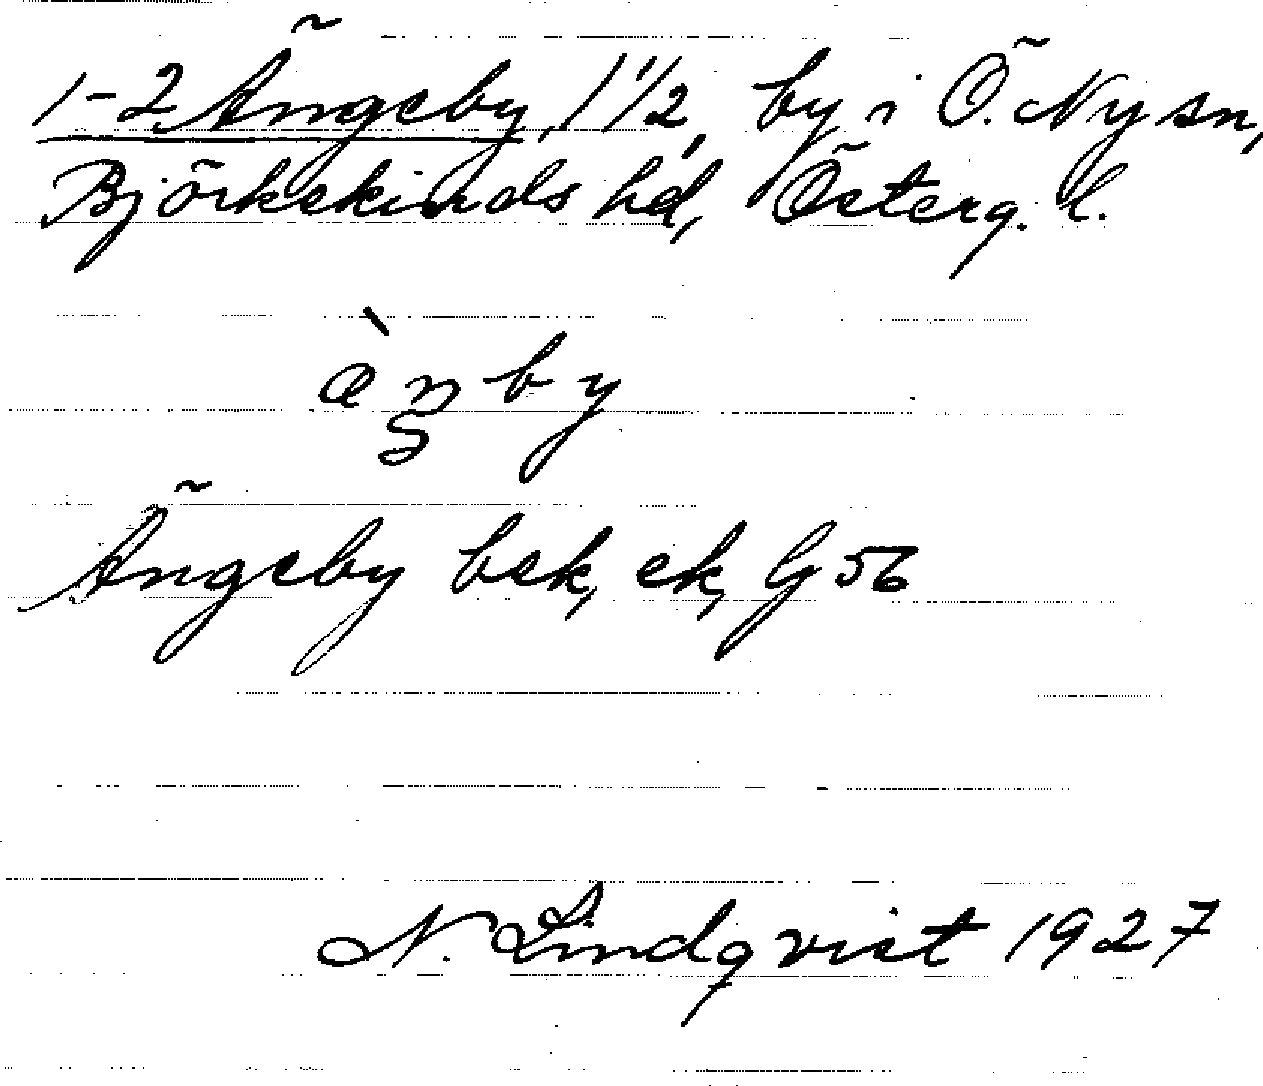 1-2 Ängeby, 1 1/2, by i Ö. Ny sn,
Björkekinds hd, Österg. l.
æ̀ŋby
Ängeby bek, ek, G 56
N. Lindqvist 1927